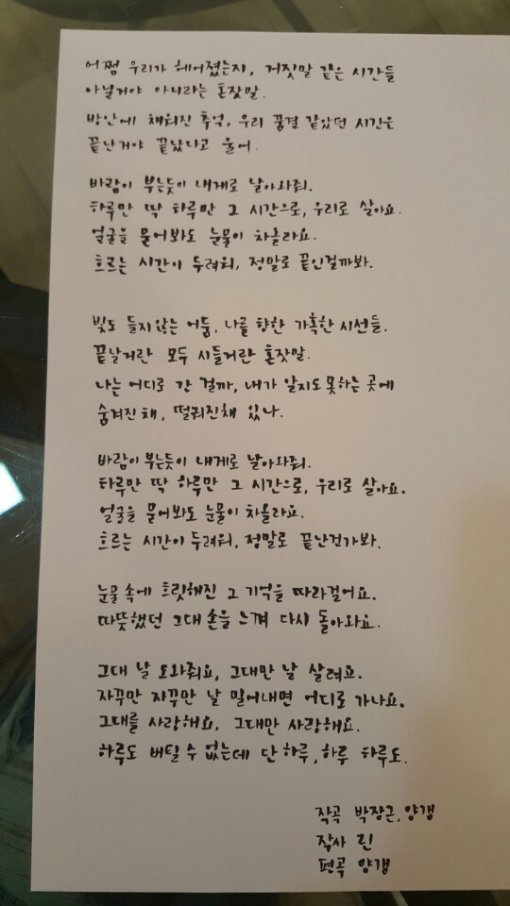 어쩜 우리가 헤어졌는지, 거짓말 같은 시간들
아닐거야 아니라는 혼잣말.
방안에 채워진 추억, 우리 꿈결 같았던 시간은
끝난거야 끝났냐고 울어.
바람이 부는듯이 내게로 날아와줘.
하루만 딱 하루만 그 시간으로, 우리로 살아요.
얼굴을 묻어봐도 눈물이 차올라요.
흐르는 시간이 두려워, 정말로 끝인걸까봐.
빛도 들지않는 어둠, 나를 향한 가혹한 시선들.
끝날거란 모두 시들거란 혼잣말.
나는 어디로 간 걸까, 내가 알지도 못하는 곳에
숨겨진채, 떨궈진채 있나.
바람이 부는듯이 내게로 날아와줘.
하루만 딱 하루만 그 시간으로, 우리로 살아요.
얼굴을 묻어봐도 눈물이 차올라요.
흐르는 시간이 두려워, 정말로 끝난건가봐.
눈물 속에 흐릿해진 그 기억을 따라걸어요.
따뜻했던 그대 손을 느껴 다시 돌아와요.
그대 날 도와줘요, 그대만 날 살려요.
자꾸만 자꾸만 날 밀어내면 어디로 가나요.
그대를 사랑해요, 그대만 사랑해요.
하루도 버틸 수 없는데 단 하루, 하루 하루도.
작곡 박장근, 양갱
작사 린
편곡 양갱